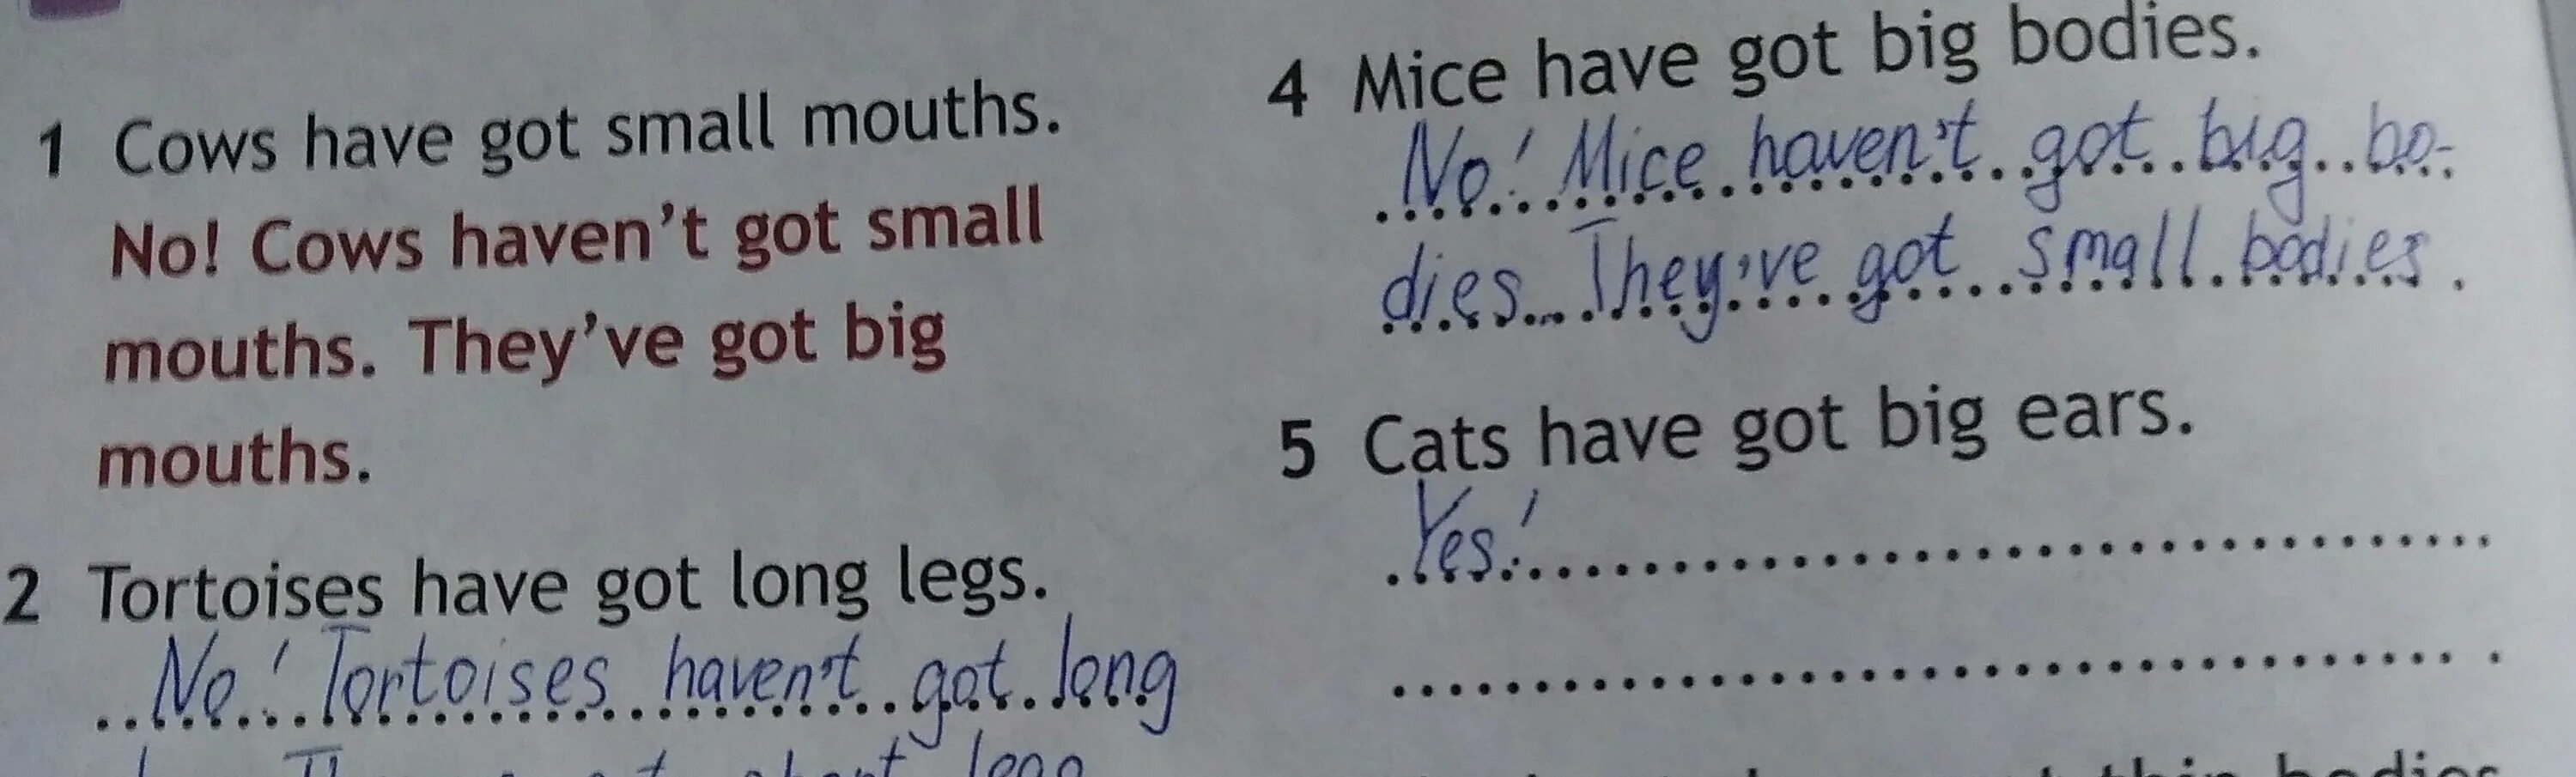 1 Cows have got small mouths.
No! Cows haven't got small
mouths. They've got big
mouths.
2 Tortoises have got long legs.
No! Tortoises haven't got long
4 Mice have got big bodies.
No! Mice haven't got big bo-
dies. They've got small bodies.
5 Cats have got big ears.
Yes!
thin bodies